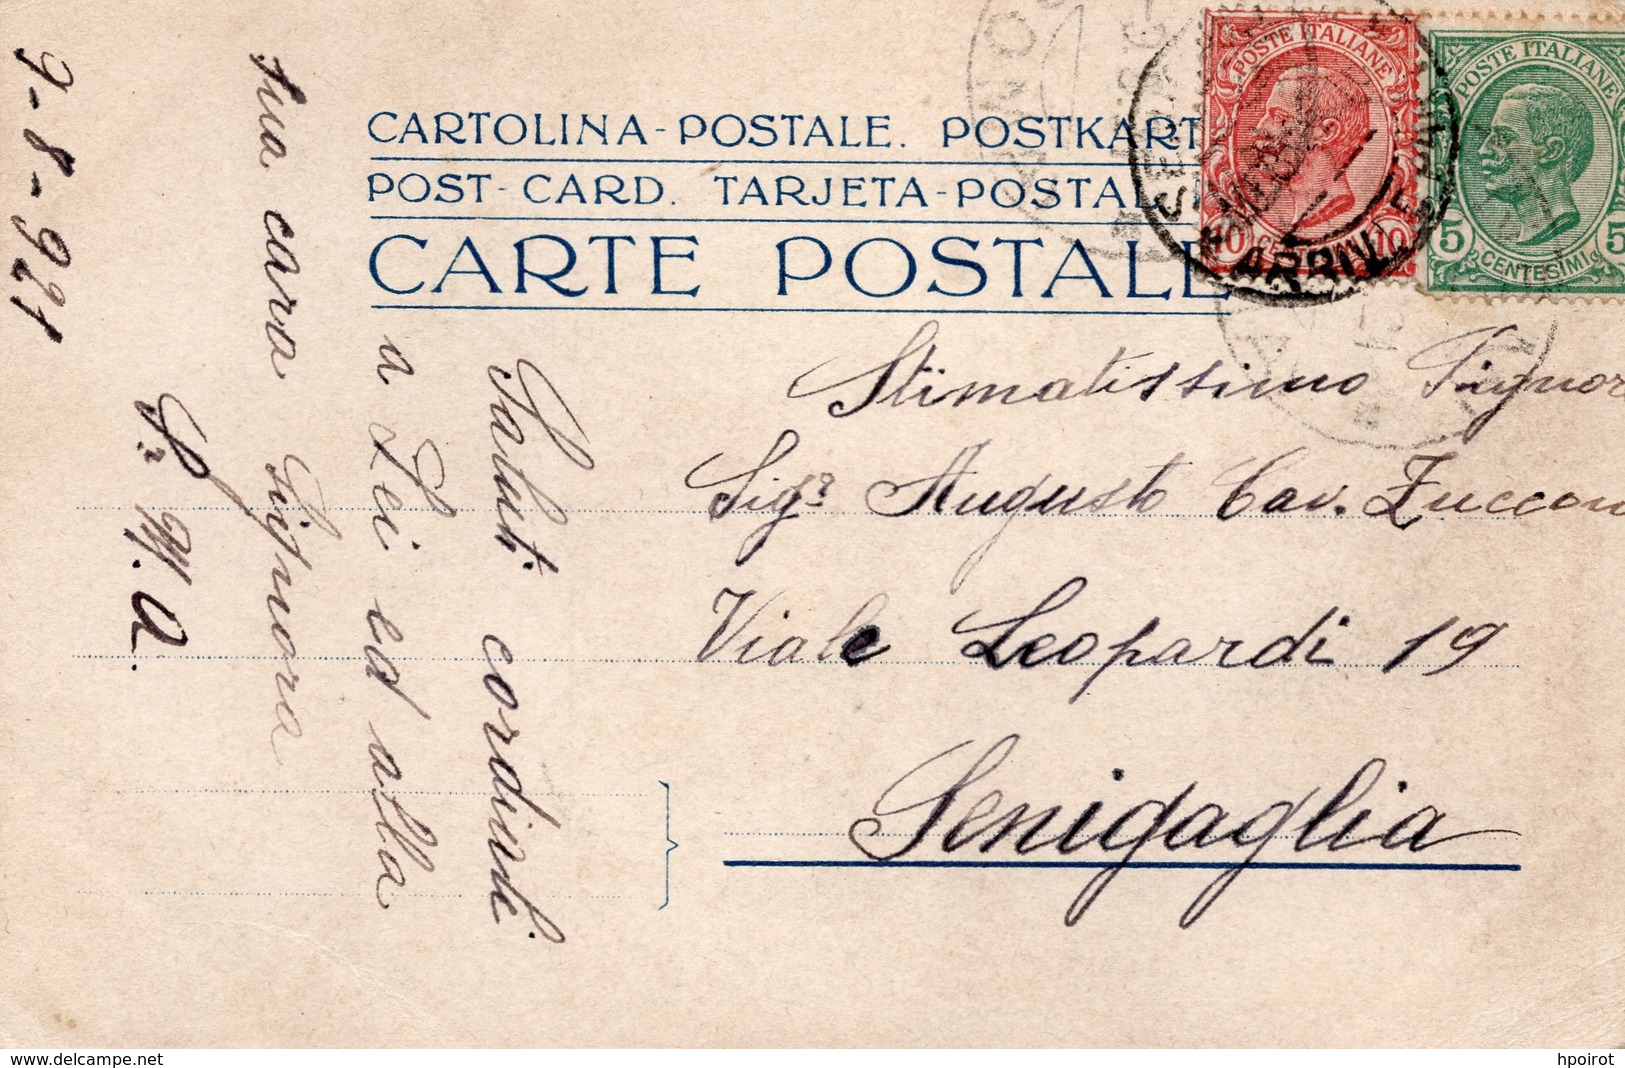 CARTOLINA-POSTALE. POSTKART
POST-CARD. TARJETA-POSTAL
CARTE POSTALE
POSTE ITALIANE
10 CENTESIMI 10
POSTE ITALIANE
5 CENTESIMI 5
ARRIVI
Stimatissimo Signor
Sigr Augusto Cav. Zuccon
Viale Leopardi 19
Senigaglia
Saluti cordiali
a Lei ed alla
sua cara Signora
M. A.
9-8-921
delcampe.net
hpoirot